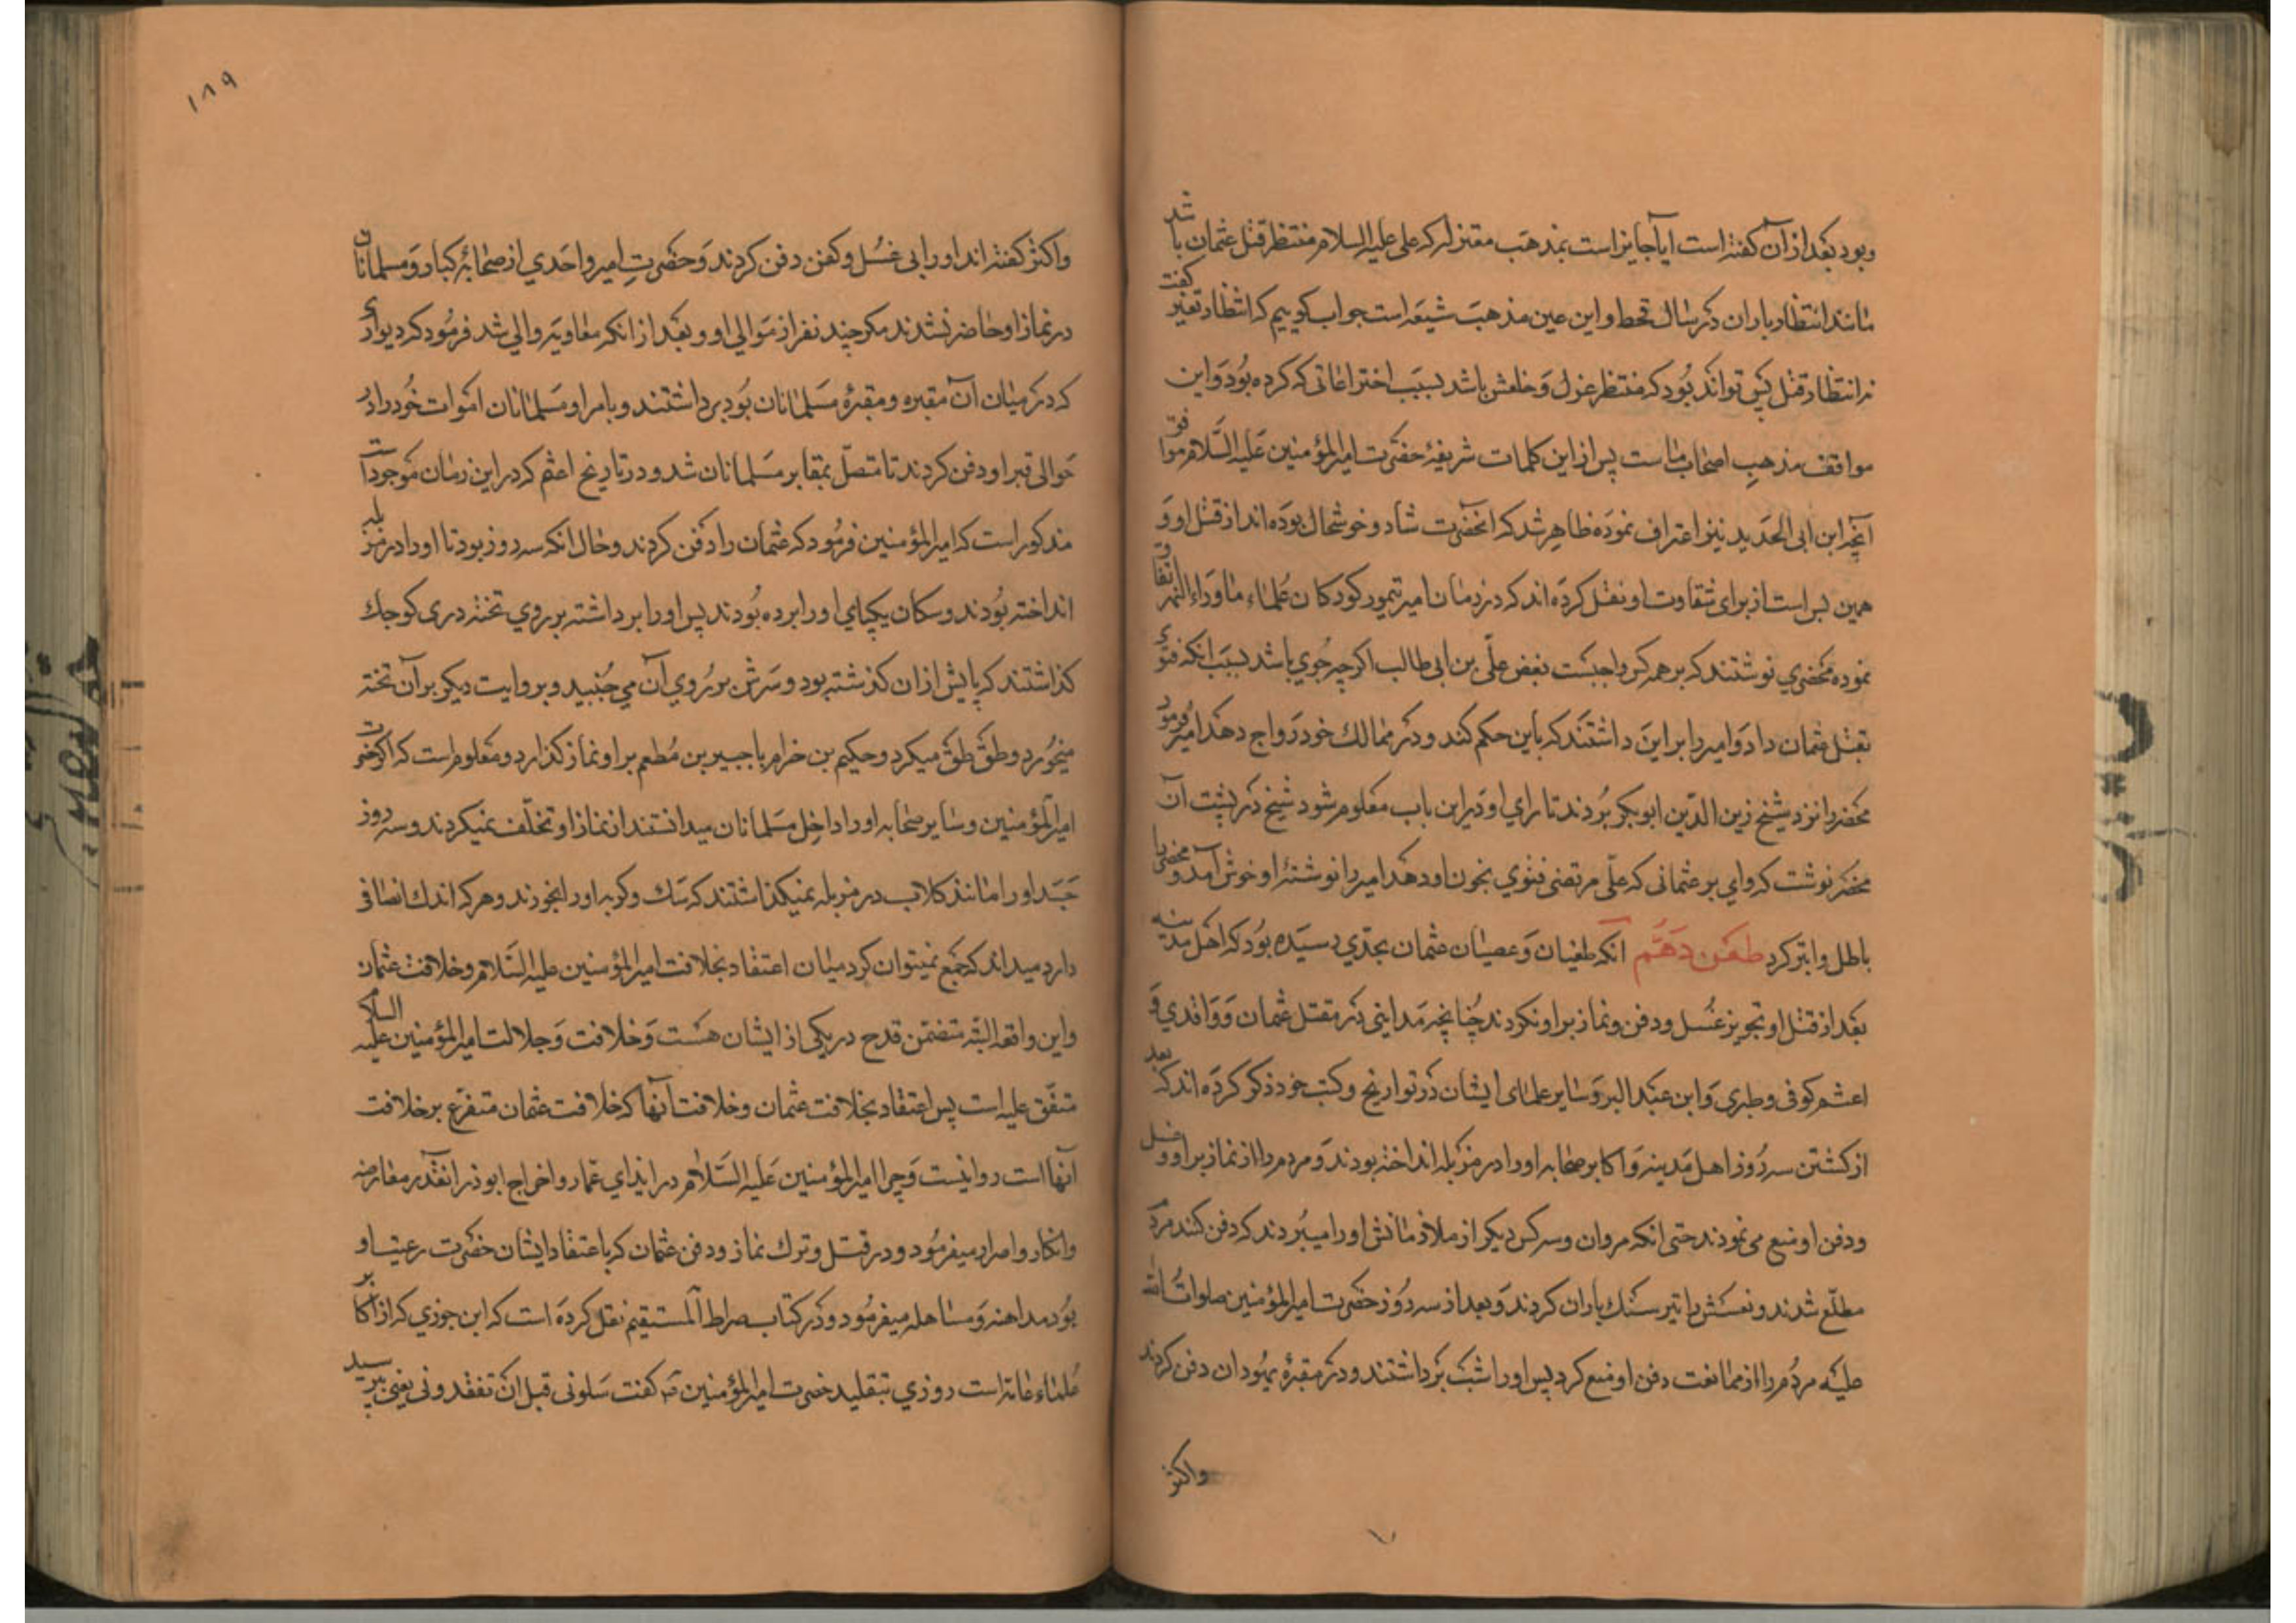 وبود بعد از آن کفته است ایا جایز است بمذهب معتزله که علی علیه السلام منتظر قتل عثمان باشد
مانند انتظار باران در سال قحط و این عین مذهب شیعه است جواب کوییم که انتظار تغیر کفت
نه انتظار قتل پس تواند بود که منتظر عزل و خلعش باشد بسبب اختراعاتی که کرده بود و این
موافق مذهب اصحاب ماست پس از این کلمات شریفهٔ حضرت امیرالمؤمنین علیه السلام موافق
آنچه ابن ابی الحدید نیز اعتراف نموده ظاهر شد که انحضرت شاد و خوشحال بوده اند از قتل او و
همین بس است از برای شقاوت او و نقل کرده اند که در زمان امیر تیمور کورکان علماء ماوراء النهر اتفاق
نموده محضری نوشتند که بر همه کس واجبست بغض علی بن ابی طالب اکرچه جوی باشد بسبب انکه فتوی
بقتل عثمان داد و امیر را بر این داشتند که باین حکم کند و در ممالک خود رواج دهد امیر فرمود
محضر را نزد شیخ زین الدین ابوبکر بردند تا رای او در این باب معلوم شود شیخ در پشت آن
محضر نوشت که وای بر عثمانی که علی مرتضی فتوی بخون او دهد امیر را نوشتهٔ او خوش آمد و محضر را
باطل و ابتر کرد طعن دهم انکه طغیان و عصیان عثمان بحدی رسیده بود که اهل مدینه
بعد از قتل او تجویز غسل و دفن و نماز بر او نکردند چنانچه مداینی در مقتل عثمان و واقدی و
اعثم کوفی و طبری و ابن عبد البر و سایر علمای ایشان در تواریخ و کتب خود ذکر کرده اند که بعد
از کشتن سه روز اهل مدینه و اکابر صحابه او را در مزبله انداخته بودند و مردم را از نماز بر او و غسل
و دفن او منع می نمودند حتی انکه مروان و سه کس دیکر از ملازمانش او را میبردند که دفن کنند مردم
مطلع شدند و نعشش را تیر سنک باران کردند و بعد از سه روز حضرت امیرالمؤمنین صلوات الله
علیه مردم را از ممانعت دفن او منع کرد پس او را شب برداشتند و در مقبرهٔ یهودان دفن کردند
واکثر
۱۸۹
واکثر کفته اند او را بی غسل و کفن دفن کردند و حضرت امیر واحدی از صحابهٔ کبار و مسلمانان
در نماز او حاضر نشدند مکر چند نفر از موالی او و بعد از انکه معاویه والی شد فرمود که دیواری
که در میان آن مقبره و مقبرهٔ مسلمانان بود برداشتند و بامر او مسلمانان اموات خود را در
حوالی قبر او دفن کردند تا متصل بمقابر مسلمانان شد و در تاریخ اعثم که در این زمان موجود است
مذکور است که امیرالمؤمنین فرمود که عثمان را دفن کردند و حال انکه سه روز بود تا او را در مزبله
انداخته بودند و سکان یکپای او را برده بودند پس او را برداشته بر روی تخته دری کوچک
کذاشتند که پایش از ان کذشته بود و سرش بر روی آن می جنبید و بروایت دیکر بر آن تخته
میخورد و طق طق میکرد و حکیم بن خرام یا جبیر بن مطعم بر او نماز کذارد و معلوم است که اکر حضرت
امیرالمؤمنین و سایر صحابه او را داخل مسلمانان میدانستند از نماز او تخلف نمیکردند و سه روز
جسد او را مانند کلاب در مزبله نمیکذاشتند که سک و کربه او را بخورند و هر که اندک انصافی
دارد میداند که جمع نمیتوان کرد میان اعتقاد بخلافت امیرالمؤمنین علیه السلام و خلافت عثمان
و این واقعه البته متضمن قدح در یکی از ایشان هست و خلافت و جلالت امیرالمؤمنین علیه السلام
متفق علیه است پس اعتقاد بخلافت عثمان و خلافت آنها که خلافت عثمان متفرع بر خلافت
آنها است روا نیست و چرا امیرالمؤمنین علیه السلام در ایذای عمار و اخراج ابوذر انقدر معارضه
و انکار و اصرار میفرمود و در قتل و ترک نماز و دفن عثمان که باعتقاد ایشان حضرت رعیت او
بود مداهنه و مساهله میفرمود و در کتاب صراط المستقیم نقل کرده است که ابن جوزی که از اکابر
علماء عامه است روزی بتقلید حضرت امیرالمؤمنین کفت سلونی قبل ان تفقدونی یعنی بپرسید